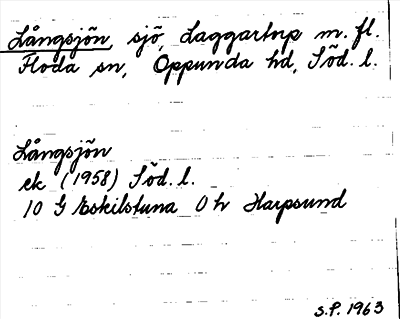 Långsjön, sjö, Laggartorp m. fl.
Floda sn, Oppunda hd, Söd. l.
Långsjön
ek (1958) Söd. l.
10 G Eskilstuna 0 h Harpsund
S.P. 1963